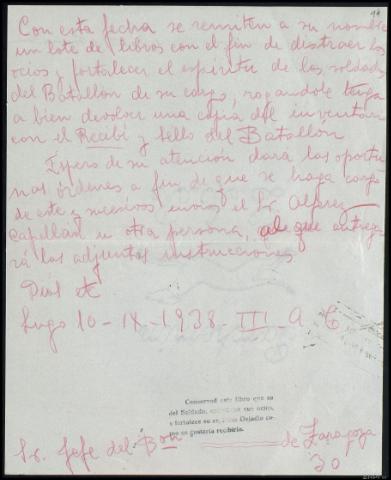 Con esta fecha se remiten a su nombre
un lote de libros con el fin de distraer los
ocios y fortalecer el espíritu de los soldados
del Batallón de su cargo, rogandole tenga
a bien devolver una copia del inventario
con el Recibí y sello del Batallón
Espero de su atención dará las oportu
nas órdenes a fin de que se haga cargo
de este y sucesivos envios el Sr. Alferez
Capellán u otra persona, al que entrega
rá las adjuntas instrucciones
Dios etc
Lugo 10-IX-1938-III-A T
Conservad este libro que es
del Soldado, su ocio,
y fortalece su
me os gustaría recibirlo.
Sr. Jefe del Bon de Zaragoza
30